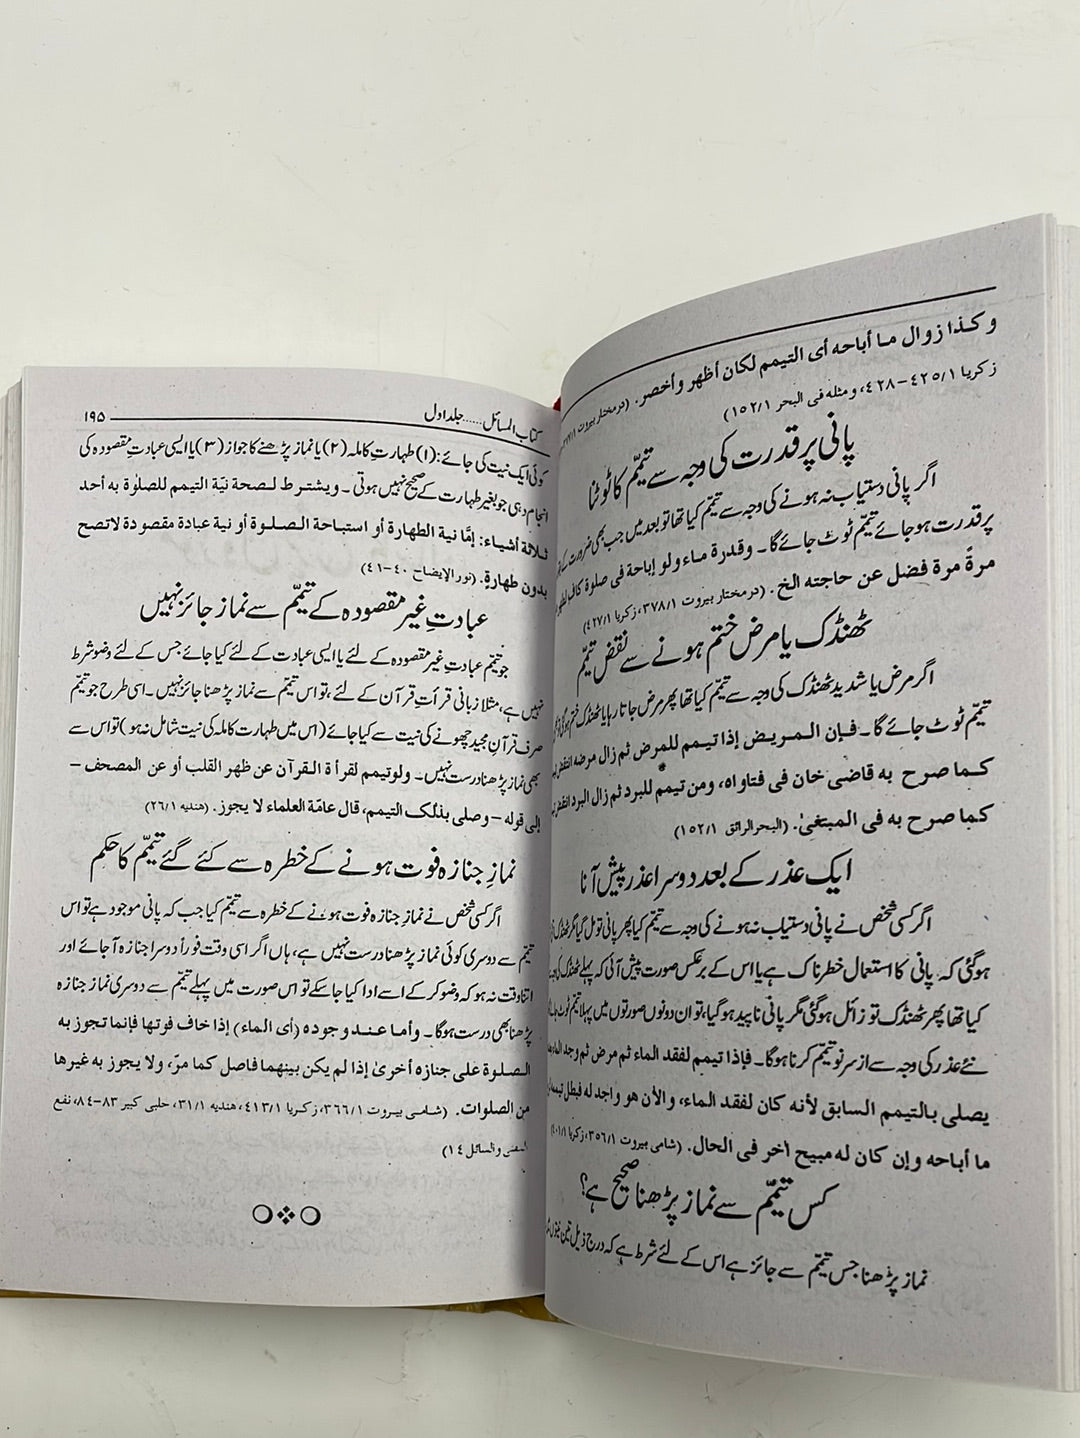 وكذا زوال ما أباحه أى التيمم لكان أظهر وأخصر. (درمختار بيروت
زكريا ٤٢٥/١-٤٢٨، ومثله فى البحر ١٥٢/١)
پانی پر قدرت کی وجہ سے تیمّم کا ٹوٹنا
اگر پانی دستیاب نہ ہونے کی وجہ سے تیمّم کیا تھا تو بعد میں جب بھی ضرورت کے
پر قدرت ہوجائے تیمّم ٹوٹ جائے گا۔ وقدرة ماء ولو إباحة فى صلوة كاف
مرةً مرة فضل عن حاجته الخ. (درمختار بيروت ٣٧٨/١، زكريا ٤٢٧/١)
ٹھنڈک یا مرض ختم ہونے سے نقض تیمّم
اگر مرض یا شدید ٹھنڈک کی وجہ سے تیمّم کیا تھا پھر مرض جاتا رہا یا ٹھنڈک ختم ہوگئی
تیمّم ٹوٹ جائے گا۔ فإن المريض إذا تيمم للمرض ثم زال مرضه انتقض
كما صرح به قاضى خان فى فتاواه، ومن تيمم للبرد ثم زال البرد انتقض
كما صرح به فى المبتغىٰ. (البحر الرائق ١٥٢/١)
ایک عذر کے بعد دوسرا عذر پیش آنا
اگر کسی شخص نے پانی دستیاب نہ ہونے کی وجہ سے تیمّم کیا پھر پانی تو مل گیا مگر ٹھنڈک
ہوگئی کہ پانی کا استعمال خطرناک ہے یا اس کے برعکس صورت پیش آئی کہ پہلے ٹھنڈک کی وجہ
کیا تھا پھر ٹھنڈک تو زائل ہوگئی مگر پانی ناپید ہوگیا، تو ان دونوں صورتوں میں پہلا تیمّم ٹوٹ
نئے عذر کی وجہ سے از سرنو تیمّم کرنا ہوگا۔ فإذا تيمم لفقد الماء ثم مرض ثم وجد الماء
يصلى بالتيمم السابق لأنه كان لفقد الماء، والأن هو واجد له فبطل
ما أباحه وإن كان له مبيح أخر فى الحال. (شامى بيروت ٣٥٦/١، زكريا ٤٠١/١)
کس تیمّم سے نماز پڑھنا صحیح ہے؟
نماز پڑھنا جس تیمّم سے جائز ہے اس کے لئے شرط ہے کہ درج ذیل تین
کتاب المسائل......جلد اول ۱۹۵
کوئی ایک نیت کی جائے: (۱) طہارتِ کاملہ (۲) یا نماز پڑھنے کا جواز (۳) یا ایسی عبادتِ مقصودہ کی
انجام دہی جو بغیر طہارت کے صحیح نہیں ہوتی۔ ويشترط لصحة نيّة التيمم للصلوٰة به أحد
ثلاثة أشياء: إمّا نية الطهارة أو استباحة الصلوة أو نية عبادة مقصودة لاتصح
بدون طهارةٍ. (نور الإيضاح ٤٠-٤١)
عبادتِ غیر مقصودہ کے تیمّم سے نماز جائز نہیں
جو تیمّم عبادتِ غیر مقصودہ کے لئے یا ایسی عبادت کے لئے کیا جائے جس کے لئے وضو شرط
نہیں ہے، مثلا زبانی قرأتِ قرآن کے لئے، تو اس تیمّم سے نماز پڑھنا جائز نہیں۔ اسی طرح جو تیمّم
صرف قرآنِ مجید چھونے کی نیت سے کیا جائے (اس میں طہارت کاملہ کی نیت شامل نہ ہو) تو اس سے
بھی نماز پڑھنا درست نہیں۔ ولوتيمم لقرأة القرآن عن ظهر القلب أو عن المصحف -
إلى قوله - وصلى بذلك التيمم، قال عامّة العلماء لا يجوز. (هنديه ٢٦/١)
نمازِ جنازہ فوت ہونے کے خطرہ سے کئے گئے تیمّم کا حکم
اگر کسی شخص نے نمازِ جنازہ فوت ہونے کے خطرہ سے تیمّم کیا جب کہ پانی موجود ہے تو اس
تیمّم سے دوسری کوئی نماز پڑھنا درست نہیں ہے، ہاں اگر اسی وقت فوراً دوسرا جنازہ آجائے اور
اتنا وقت نہ ہو کہ وضو کرکے اسے ادا کیا جاسکے تو اس صورت میں پہلے تیمّم سے دوسری نماز جنازہ
پڑھنا بھی درست ہوگا۔ وأما عند وجوده (أى الماء) إذا خاف فوتها فإنما تجوز به
الصلوة على جنازه أخرىٰ إذا لم يكن بينهما فاصل كما مرّ، ولا يجوز به غيرها
من الصلوات. (شامى بيروت ٣٦٦/١، زكريا ٤١٣/١، هنديه ٣١/١، حلبى كبير ٨٣-٨٤، نفع
المفتى والسائل ١٤)